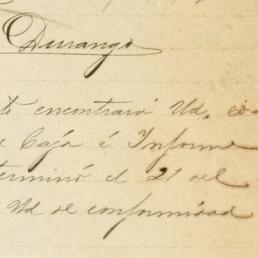 Durango
encontrará Ud. 
Caja é Informe
terminó el 21 del
Ud de conformidad